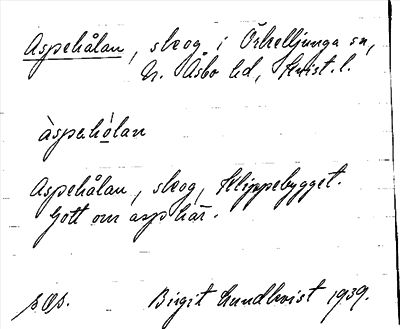 Aspehålan, skog i Örkelljunga sn,
N. Åsbo hd, Krist. l.
àspehólan
Aspehålan, skog, Klippebygget.
Gott om asp här.
Birgit Lundkvist 1939.